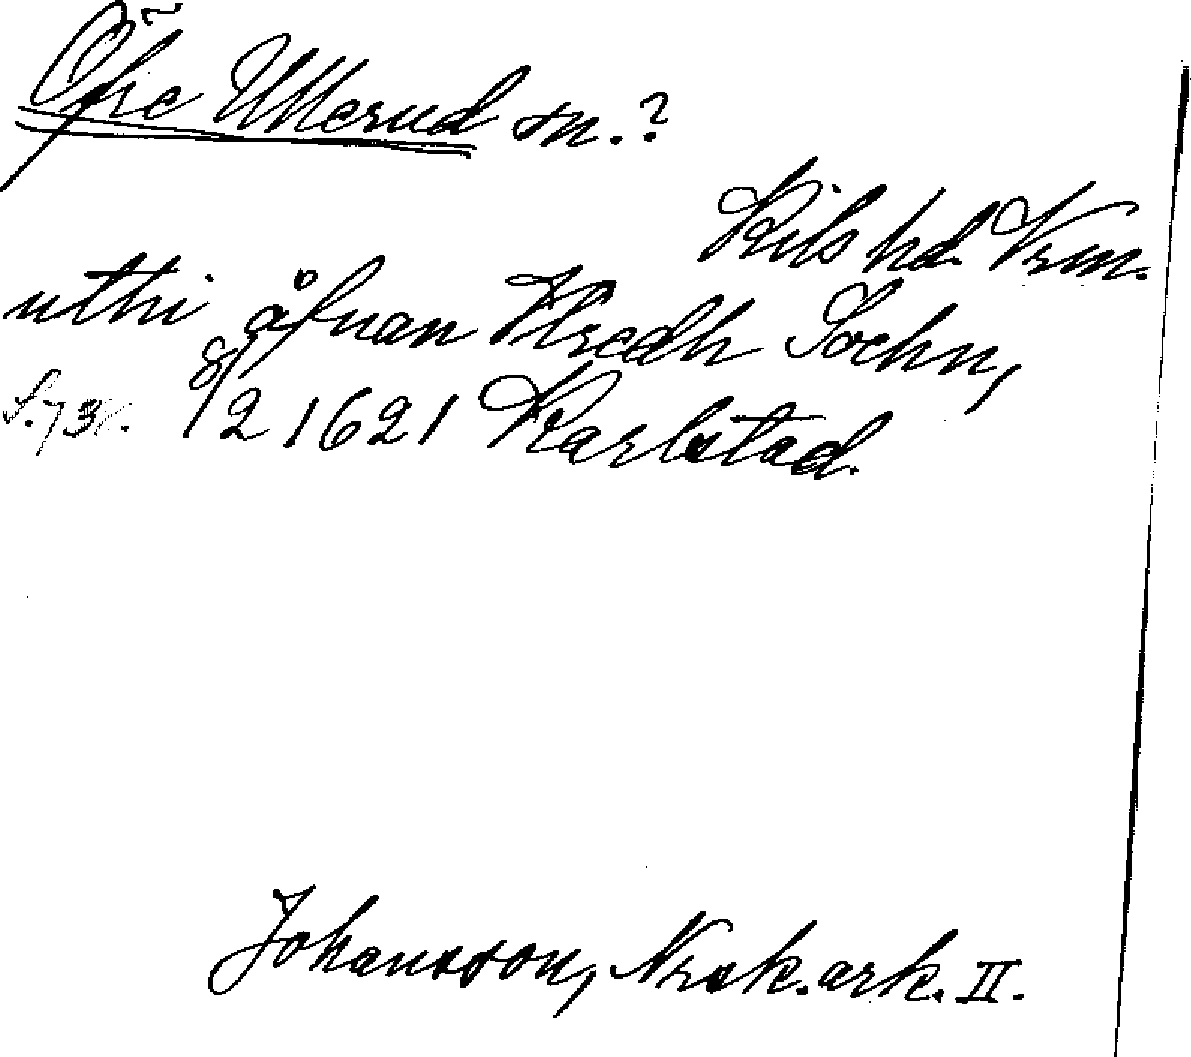 Öfre Ullerud sn.?
Kils hd. Vrm.
uthi åfuan Vlredh Sochn,
S. 73. 8/2 1621 Karlstad.
Johansson, Nrsk. ark. II.